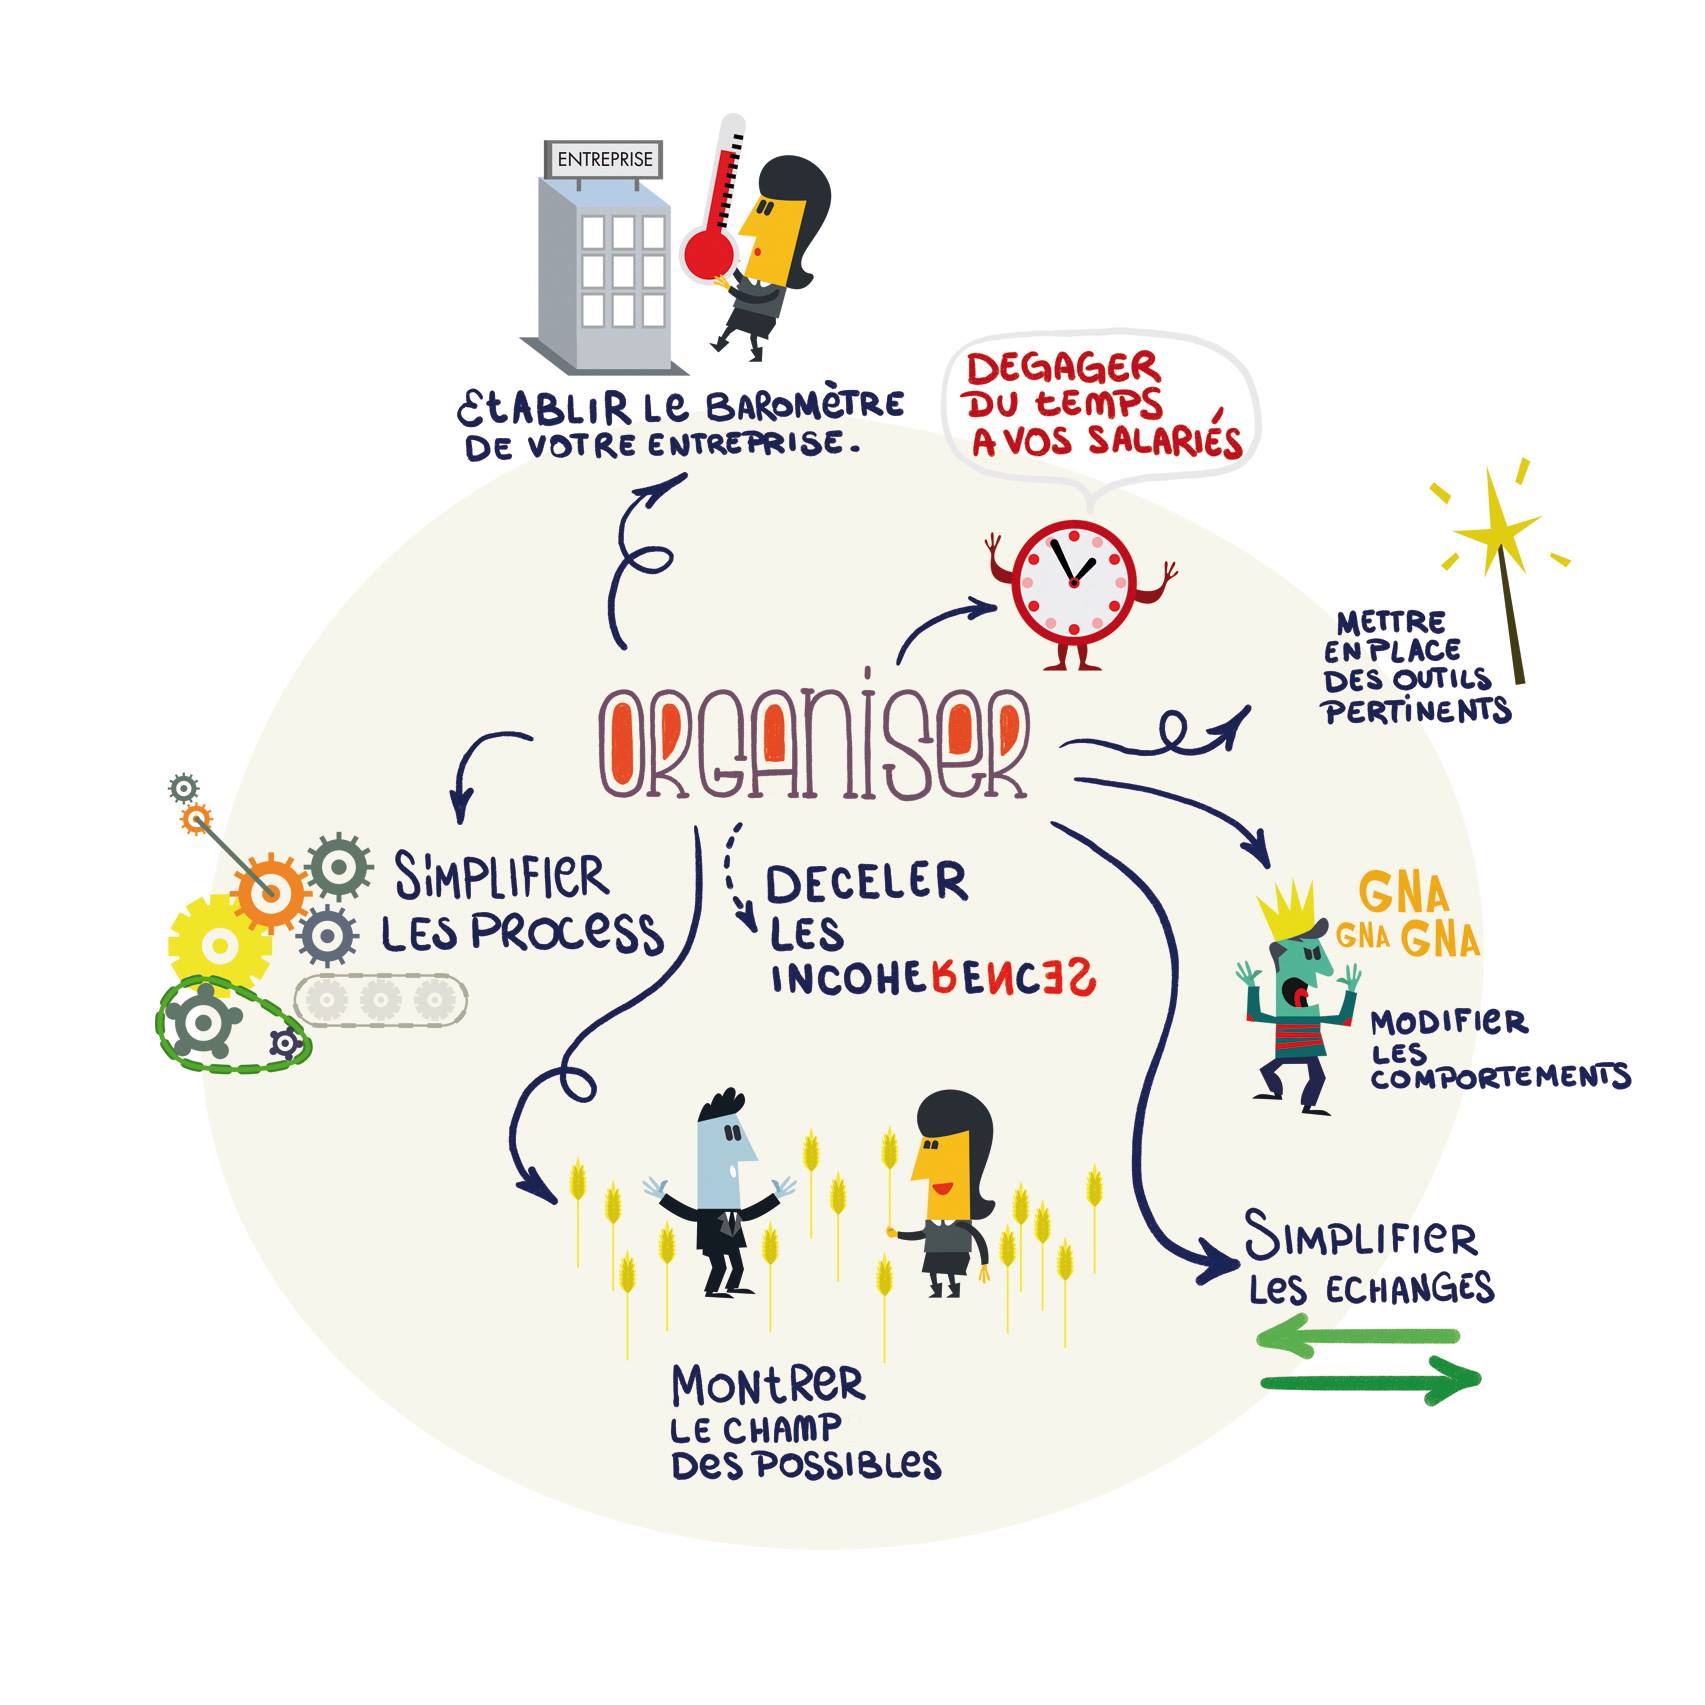 ENTREPRISE
ETABLIR LE BAROMÈTRE
DE VOTRE ENTREPRISE.
DEGAGER
DU TEMPS
A VOS SALARIÉS
METTRE
EN PLACE
DES OUTILS
PERTINENTS
ORGANISER
SIMPLIFIER
LES PROCESS
DECELER
LES
INCOHERENCES
GNA
GNA GNA
MODIFIER
LES
COMPORTEMENTS
SIMPLIFIER
LES ECHANGES
MONTRER
LE CHAMP
DES POSSIBLES